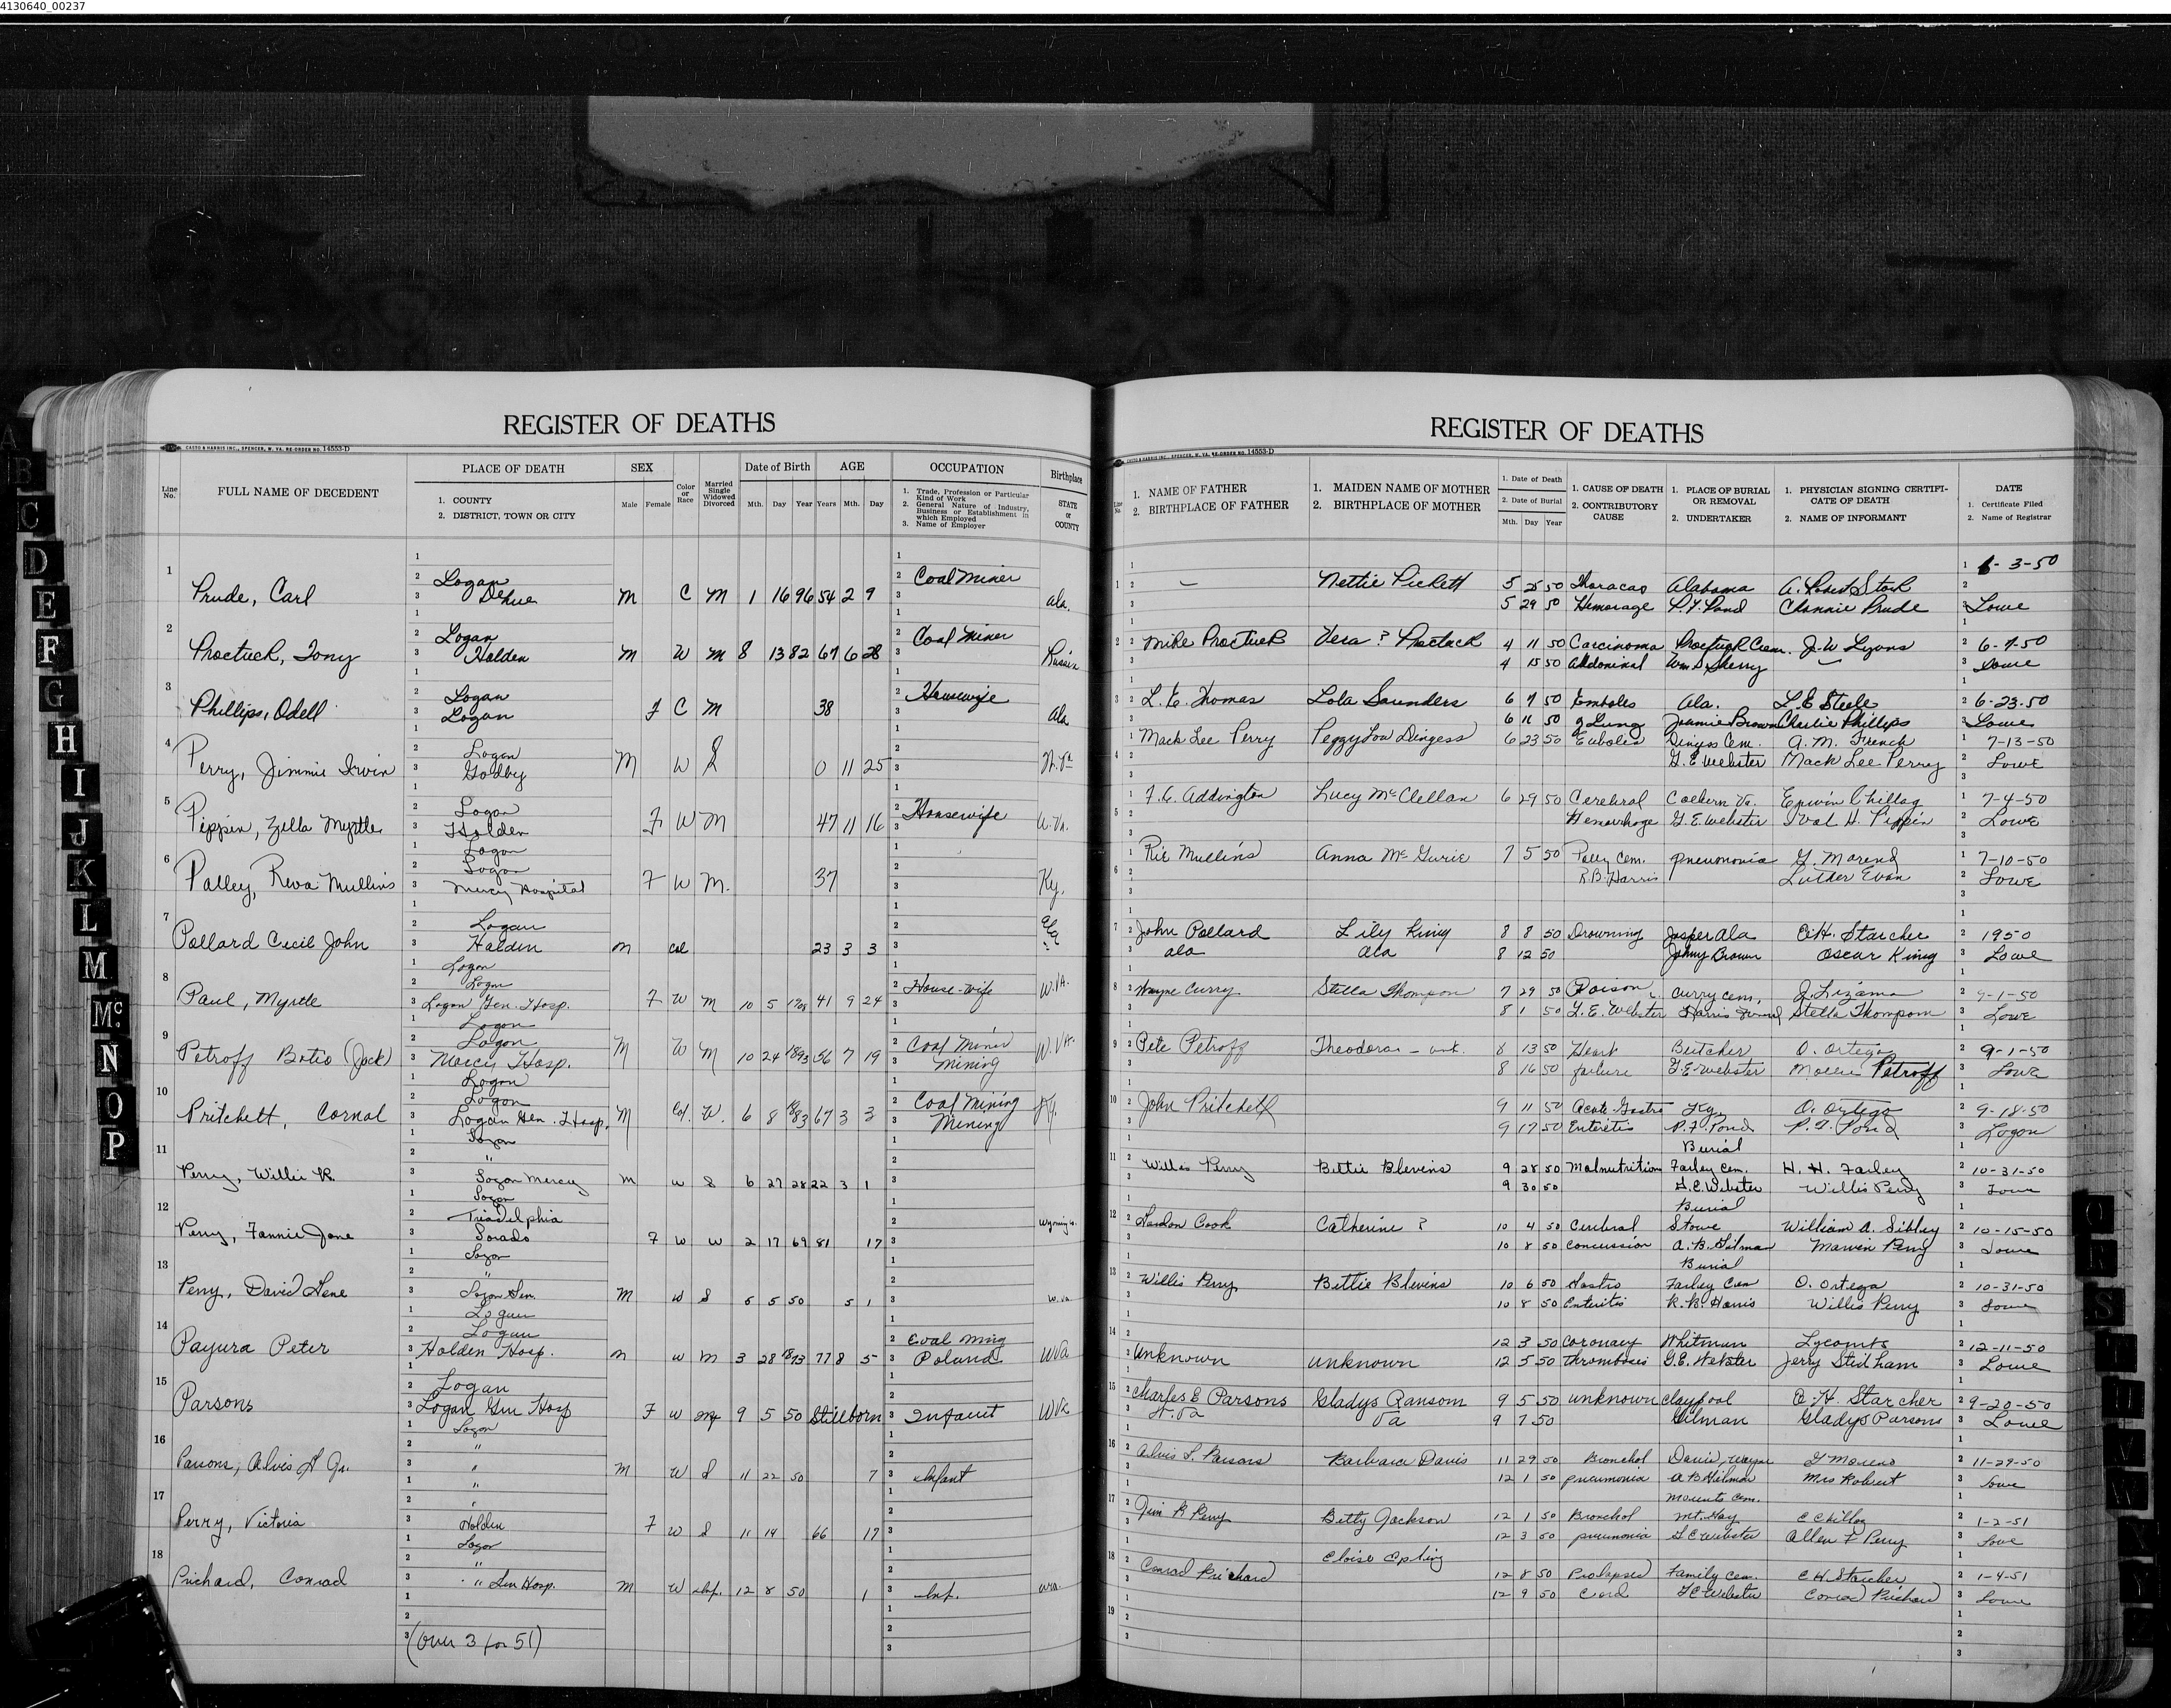 4130640_00237
REGISTER OF DEATHS
CASTO & HARRIS INC., SPENCER, W. VA. RE-ORDER NO. 14553-D
Line No.
FULL NAME OF DECEDENT
PLACE OF DEATH
1. COUNTY
2. DISTRICT, TOWN OR CITY
SEX
Male Female
Color or Race
Married Single Widowed Divorced
Date of Birth
Mth. Day Year
AGE
Years Mth. Day
OCCUPATION
1. Trade, Profession or Particular Kind of Work
2. General Nature of Industry, Business or Establishment in which Employed
3. Name of Employer
Birthplace
STATE or COUNTY
1 Prude, Carl Logan Dehue M C M 1 16 96 54 2 9 Coal Miner Ala.
2 Proctuck, Tony Logan Holden M W M 8 13 82 67 6 28 Coal Miner Russia
3 Phillips, Odell Logan Logan F C M 38 Housewife Ala
4 Perry, Jimmie Irwin Logan Godby M W S 0 11 25 W. Va
5 Pippin, Zella Myrtle Logan Holden F W M 47 11 16 Housewife W. Va.
6 Palley, Reva Mullins Logan Logan Mercy Hospital F W M. 37 Ky.
7 Pollard Cecil John Logan Holden M col 23 3 3 Ala.
8 Paul, Myrtle Logan Logan Logan Gen. Hosp. F W M 10 5 41 9 24 House-wife W. VA.
9 Petroff Botio (Jack) Logan Logan Mercy Hosp. M W M 10 24 1893 56 7 19 Coal Miner Mining W. VA.
10 Pritchett, Cornal Logan Logan Logan Gen. Hosp. M Col. W. 6 8 1883 67 3 3 Coal Mining Mining Ky.
11 Perry, Willie R. Logan " Logan Mercy M W S 6 27 28 22 3 1
12 Perry, Fannie Jane Logan Triadelphia Lorado F W W 2 17 69 81 17 Wyoming Co.
13 Perry, David Gene Logan " Logan Gen. M W S 5 5 50 5 1 W. Va.
14 Payura Peter Logan Logan Holden Hosp. M W M 3 28 1873 77 8 5 Coal Ming Poland W Va
15 Parsons Logan Logan Gen Hosp F W Inf 9 5 50 Stillborn Infant W Va
16 Parsons, Alvis L Jr. Logan " " M W S 11 22 50 7 Infant
17 Perry, Victoria " " Holden F W S 11 14 66 17
18 Prichard, Conrad Logan " " Gen Hosp. M W Inf. 12 8 50 1 Inf. W Va.
(Over 3 for 51)
REGISTER OF DEATHS
CASTO & HARRIS INC., SPENCER, W. VA. RE-ORDER NO. 14553-D
Line No.
1. NAME OF FATHER
2. BIRTHPLACE OF FATHER
1. MAIDEN NAME OF MOTHER
2. BIRTHPLACE OF MOTHER
1. Date of Death
2. Date of Burial
Mth. Day Year
1. CAUSE OF DEATH
2. CONTRIBUTORY CAUSE
1. PLACE OF BURIAL OR REMOVAL
2. UNDERTAKER
1. PHYSICIAN SIGNING CERTIFICATE OF DEATH
2. NAME OF INFORMANT
DATE
1. Certificate Filed
2. Name of Registrar
6-3-50
1 — Nettie Pickett 5 25 50 Thoracas Alabama A. Robert Stock
5 29 50 Hemorage P. F. Pond Channie Prude Lowe
2 Mike Proctuck Vera ? Proctack 4 11 50 Carcinoma Cem. J. W Lyons 6-7-50
4 15 50 Abdominal Wm S Sherry — Lowe
3 L. E. Thomas Lola Saunders 6 7 50 Emboles Ala. L. E Steele 6-23-50
6 11 50 g Lung Brown Charlie Phillips Lowe
4 Mack Lee Perry Peggy Lou Dingess 6 23 50 Embolis Dingess Cem. A. M. French 7-13-50
G. E Webster Mack Lee Perry Lowe
5 F. C. Addington Lucy McClellan 6 29 50 Cerebral Coeburn Va. Erwin Chillag 7-4-50
Hemorrhage G. E. Webster Oval H. Pippin Lowe
6 Rie Mullins Anna McGurie 7 5 50 Polley Cem. pneumonia G. Moreno 7-10-50
R. B. Harris Luther Evan Lowe
7 John Pollard Lily King 8 8 50 Drowning Jasper Ala E. H. Starcher 1950
ala ala 8 12 50 Johny Brown Oscar King Lowe
8 Wayne Curry Stella Thompson 7 29 50 Poison Curry cem, J. Lizama 9-1-50
8 1 50 G. E. Webster Harris Stella Thompson Lowe
9 Pete Petroff Theodora - unk. 8 13 50 Heart Butcher O. Ortega 9-1-50
8 16 50 failure G. E. Webster Mollie Petroff Lowe
10 John Pritchett 9 11 50 Acute Gastro Ky. O. Ortega 9-18-50
9 17 50 Enteretis P. F. Pond P. F. Pond Logan
Burial
11 Willis Perry Bettie Blevins 9 28 50 Malnutrition Farley Cem. H. H. Farley 10-31-50
9 30 50 G. E. Webster Willis Perry Lowe
Burial
12 Cook Catherine ? 10 4 50 Cerebral Stowe William A. Sibley 10-15-50
10 8 50 concussion A. B. Gilman Marvin Perry Lowe
Burial
13 Willis Perry Bettie Blevins 10 6 50 Gastro Farley Cem O. Ortega 10-31-50
10 8 50 Enteritis R. B. Harris Willis Perry Lowe
14 Unknown Unknown 12 3 50 Coronary Whitman 12-11-50
12 5 50 Thrombosis G. E. Webster Jerry Stidham Lowe
15 Charles E Parsons Gladys Ransom 9 5 50 unknown Claypool E. H. Starcher 9-20-50
W. Va Va 9 7 50 Gilman Gladys Parsons Lowe
16 Alvis L. Parsons Barbara Davis 11 29 50 Bronchol Davis, Wayne G Moreno 11-29-50
12 1 50 pneumonia A B Gilman Mrs Robert Lowe
Mounts Cem.
17 Jim R Perry Betty Jackson 12 1 50 Bronchol Mt. Gay E Chillag 1-2-51
12 3 50 pneumonia G E Webster Allen F Perry Lowe
18 Conrad Prichard Eloise Epling 12 8 50 Prolapsed Family Cem. E H Starcher 1-4-51
12 9 50 Cord G E Webster Conrad Prichard Lowe
19
A
B
C
D
E
F
G
H
I
J
K
L
M
Mc
N
O
P